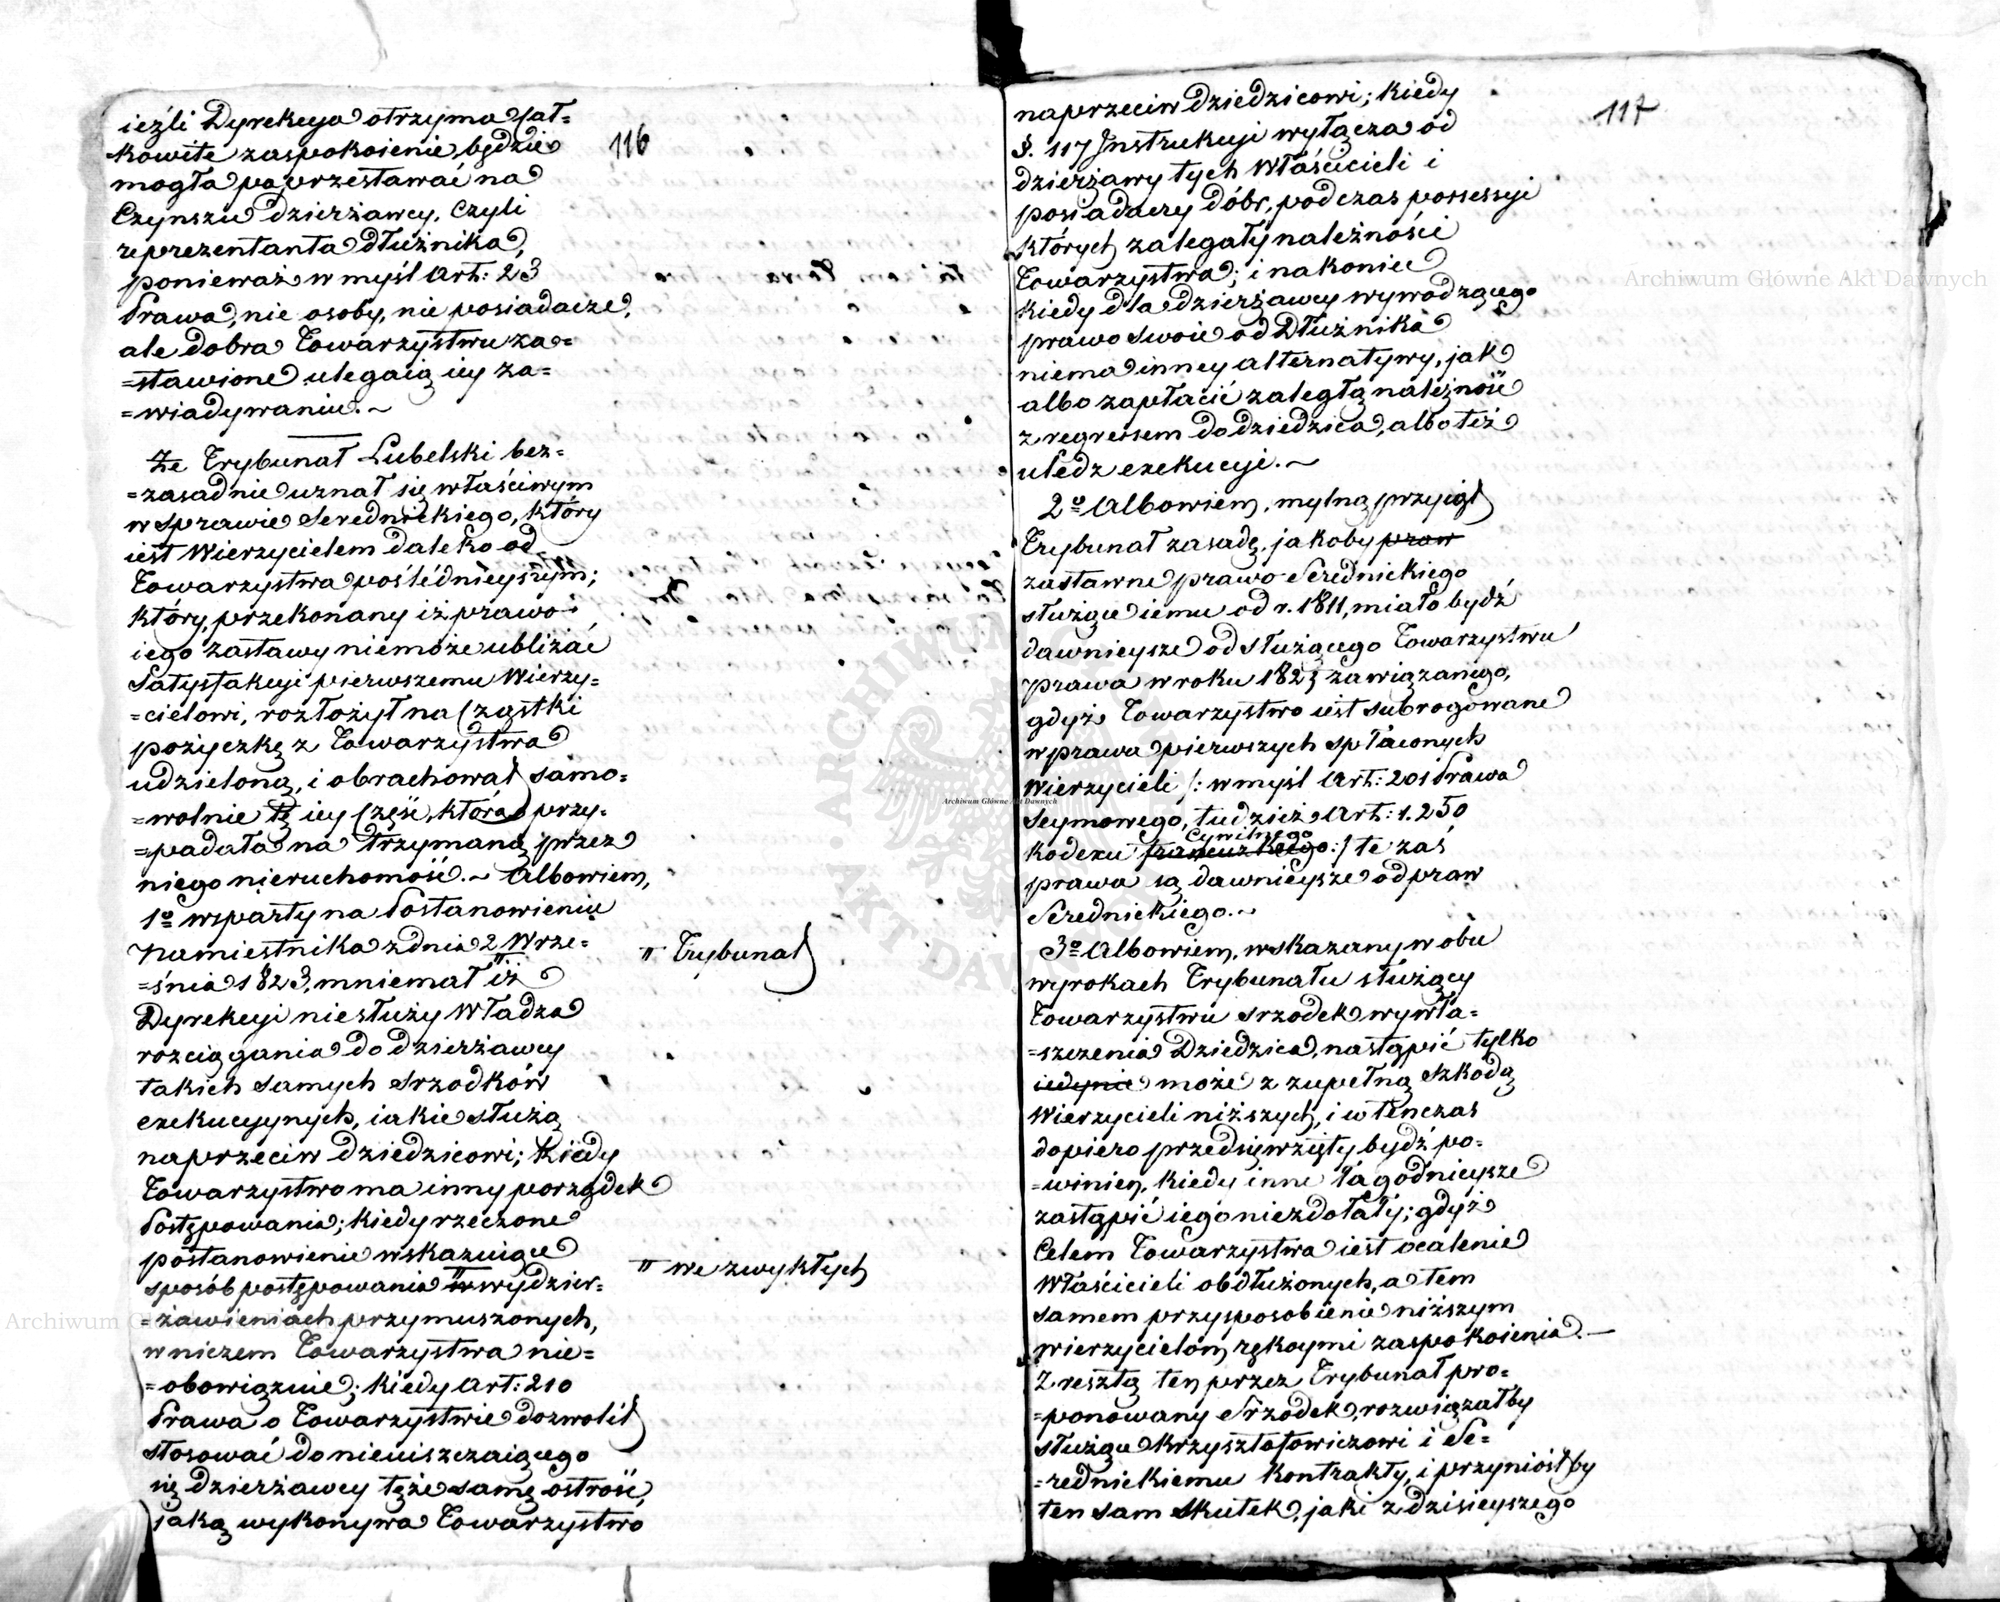 116
ieźli Dyrekcya otrzyma cał=
kowite zaspokoienie, będzie
mogła poprzestawać na
Czynszu dzierżawcy, Czyli
reprezentanta dłużnika,
ponieważ w myśl Art: 23
Prawa, nie osoby, nie posiadacze,
ale dobra Towarzystwu za=
=stawione ulegaią iey za=
=wiadywaniu.~
Że Trybunał Lubelski bez=
=zasadnie uznał się właściwym
w sprawie Serednickiego, który
iest Wierzycielem daleko od
Towarzystwa pośledniejszym;
który, przekonany iż prawo
iego zastawy niemoże ubliżać
Satysfakcyi pierwszemu Wierzy=
=cielowi, rozłożył na Cząstki
pożyczkę z Towarzystwa
udzieloną, i obrachował samo=
=wolnie tę iey Część, która przy=
=padała na trzymaną przez
niego nieruchomość.~ Albowiem,
1o wsparty na Postanowieniu
Namiestnika z dnia 2 Wrze=
=śnia 1823, mniemał iż
" Trybunał
Dyrekcyi niesłuży Władza
rozciągania do dzierżawcy
takich samych srzodków
exekucyynych, iakie służą
naprzeciw dziedzicowi; Kiedy
Towarzystwo ma inny porządek
Postępowania; kiedy rzeczone
postanowienie wskazuiące
sposób postępowania w wydzier=
" we zwykłych
=żawieniach przymuszonych,
w niczem Towarzystwa nie=
=obowiązuie; kiedy Art: 210
Prawa o Towarzystwie dozwolił
stosować do nieuiszczaiącego
się dzierżawcy tęże samę ostrość,
jaką wykonywa Towarzystwo
117
naprzeciw dziedzicowi; kiedy
§. 117 Instrukcyi wyłącza od
dzierżawy tych Właścicieli i
posiadaczy dóbr, podczas possessyi
których zaległy należności
Towarzystwa; i nakoniec
kiedy dla dzierżawcy wywodzącego
prawo swoie od Dłużnika
niema inney alternatywy, jak
albo zapłacić zaległą należność
z regressem do dziedzica, albo też
uledz exekucyi.~
2o Albowiem, mylną przyiął
Trybunał zasadę, jakoby praw
zastawne prawo Serednickiego
służące iemu od r. 1811, miało bydź
dawnieysze od służącego Towarzystwu
prawa w roku 1825 zawiązanego,
gdyż Towarzystwo iest subrogowane
w prawa pierwszych spłaconych
Wierzycieli /: w myśl Art: 201 Prawa
Seymowego, tudzież Art: 1.250
Cywilnego
kodexu francuzkiego :/ te zaś
prawa są dawnieysze od praw
Serednickiego.~
3o Albowiem, wskazany w obu
wyrokach Trybunału służący
Towarzystwu srzodek wywła=
=szczenia Dziedzica, nastąpić tylko
iedynie może z zupełną szkodą
Wierzycieli niższych, i w tenczas
dopiero przedsięwzięty bydź po=
=winien, kiedy inne łagodnieysze
zastąpić iego niezdołały; gdyż
Celem Towarzystwa iest ocalenie
Właścicieli obdłużonych, a tem
samem przysposobienie niższym
wierzycielom rękoymi zaspokoienia.—
Zresztą ten przez Trybunał pro=
=ponowany Srzodek, rozwiązałby
służące Krzysztofowiczowi i Se=
=rednickiemu Kontrakty, i przyniósłby
ten sam skutek, jaki z dzisieyszego
Archiwum Główne Akt Dawnych